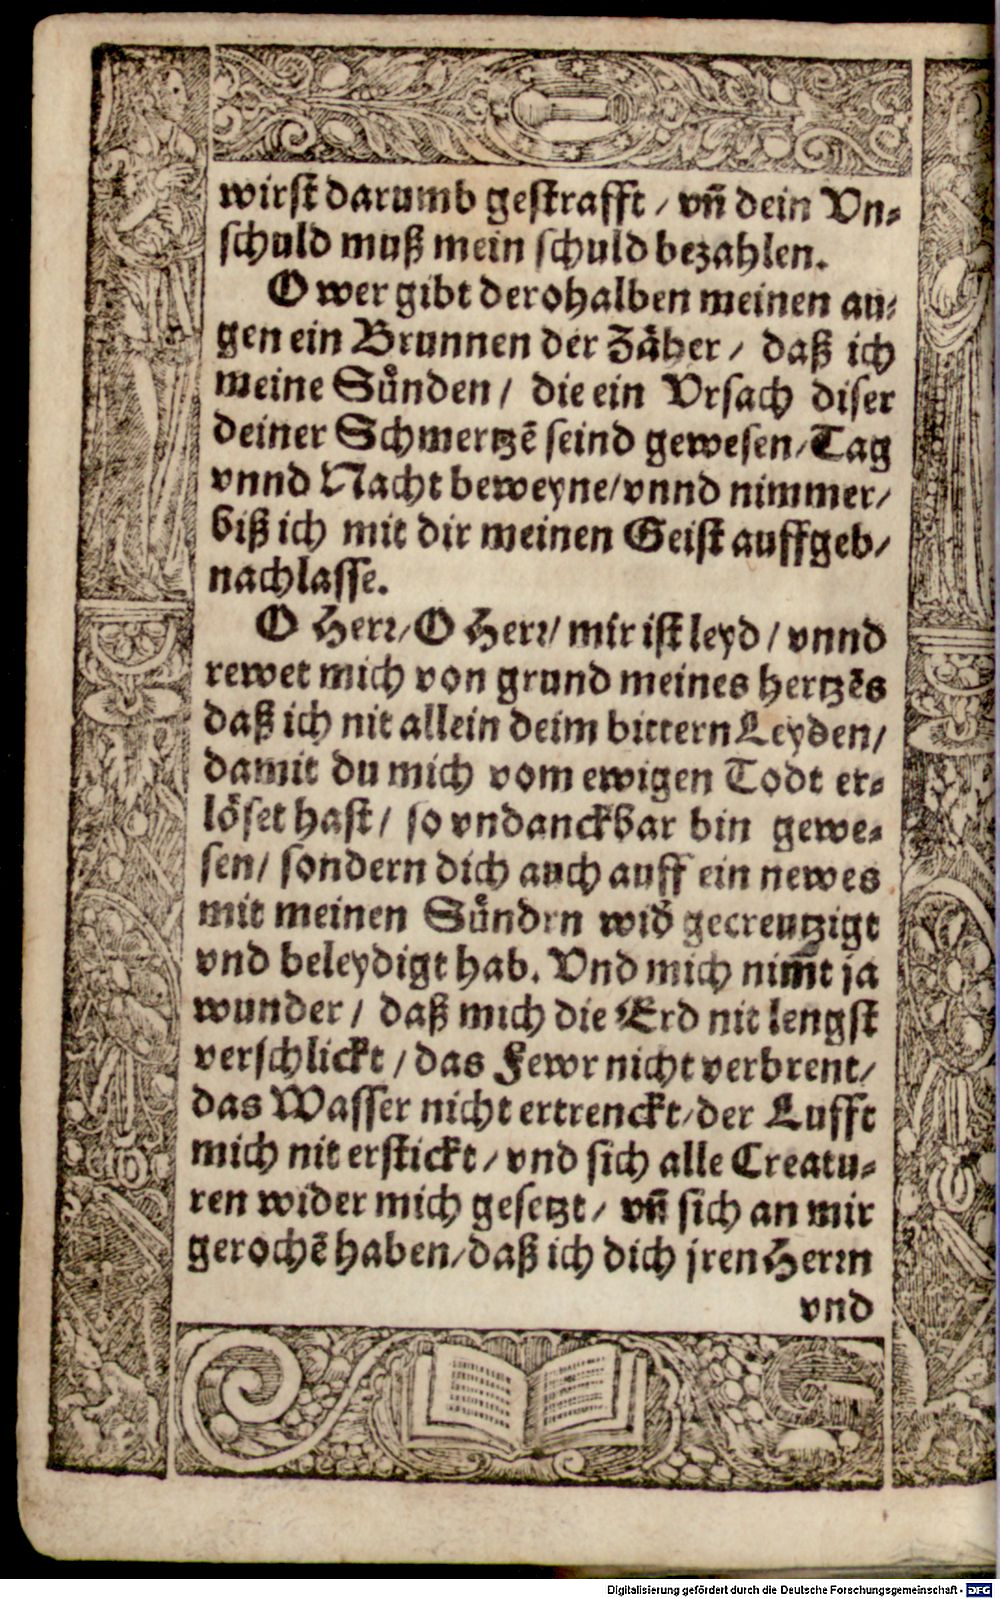 wirst darumb gestrafft / vn̄ dein Vn⸗
schuld muß mein schuld bezahlen.
O wer gibt derohalben meinen au⸗
gen ein Brunnen der Zäher / daß ich
meine Sünden / die ein Vrsach diser
deiner Schmertzē seind gewesen / Tag
vnnd Nacht beweyne / vnnd nimmer /
biß ich mit dir meinen Geist auffgeb /
nachlasse.
O Herr / O Herr / mir ist leyd / vnnd
rewet mich von grund meines hertzēs
daß ich nit allein deim bittern Leyden /
damit du mich vom ewigen Todt er⸗
löset hast / so vndanckbar bin gewe⸗
sen / sondern dich auch auff ein newes
mit meinen Sündrn wid̄ gecreutzigt
vnd beleydigt hab. Vnd mich nim̄t ja
wunder / daß mich die Erd nit lengst
verschlickt / das Fewr nicht verbrent /
das Wasser nicht ertrenckt / der Lufft
mich nit erstickt / vnd sich alle Creatu⸗
ren wider mich gesetzt / vn̄ sich an mir
gerochē haben / daß ich dich jren Herrn
vnd
Digitalisierung gefördert durch die Deutsche Forschungsgemeinschaft - DFG